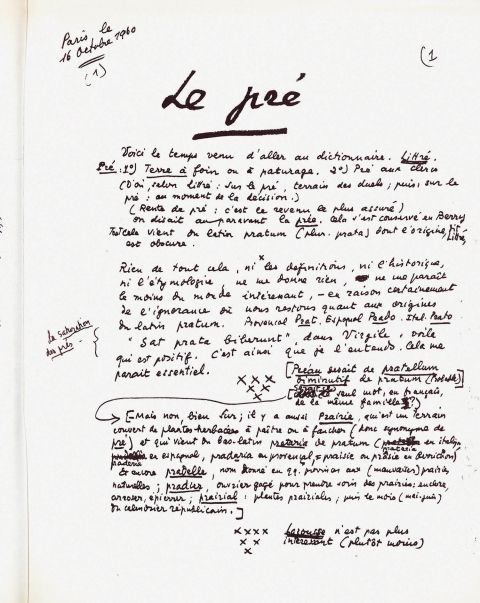 Paris, le
16 Octobre 1960
(1)
(1
Le pré
Voici le temps venu d'aller au dictionnaire. Littré.
Pré : 1º) Terre à foin ou à paturage. 2º) Pré aux clercs
(D'où, selon Littré : sur le pré, terrain des duels ; puis, sur le
pré : au moment de la décision.)
(Rente de pré : c'est le revenu le plus assuré)
On disait auparavant la prée. Cela s'est conservé en Berry
Tout cela vient du latin pratum (plur. prata) dont l'origine, dit Littré,
est obscure.
Rien de tout cela, ni les définitions, ni l'historique,
ni l'étymologie, ne me donne rien, ne me paraît
le moins du monde intéressant, – en raison certainement
de l'ignorance où nous restons quant aux origines
du latin pratum. Provençal Prat. Espagnol Prado. Ital. Prato
La saturation
des prés
"Sat prata biberunt", dans Virgile, voilà
qui est positif. C'est ainsi que je l'entends. Cela me
paraît essentiel.
x x x
x x
x
[Préau serait de pratellum
diminutif de pratum (Probable)]
[Serait-ce
le seul mot, en français,
de la même famille ?]
[Mais non, bien sur ; il y a aussi Prairie, qui est un terrain
couvert de plantes herbacées à paître ou à faucher (donc synonyme de
pré) et qui vient du bas-latin prataria de pratum (prateria en italien
praderia en espagnol, pradaria en provençal = praisie ou prasie en berrichon)
Et encore pradelle, nom donné en qq. provinces aux (mauvaises) prairies
naturelles ; pradier, ouvrier gagé pour prendre soin des prairies : enclore,
arroser, épierrer ; prairial : plantes prairiales ; puis le mois (mai-juin)
du calendrier républicain.]
x x x x
x x
x
Larousse n'est pas plus
intéressant (plutôt moins)